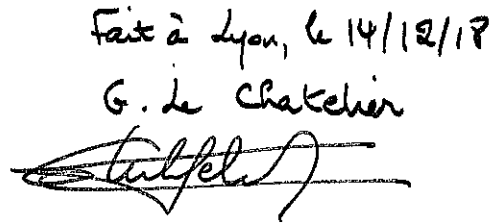 Fait à Lyon, le 14/12/18
G. Le Chatelier